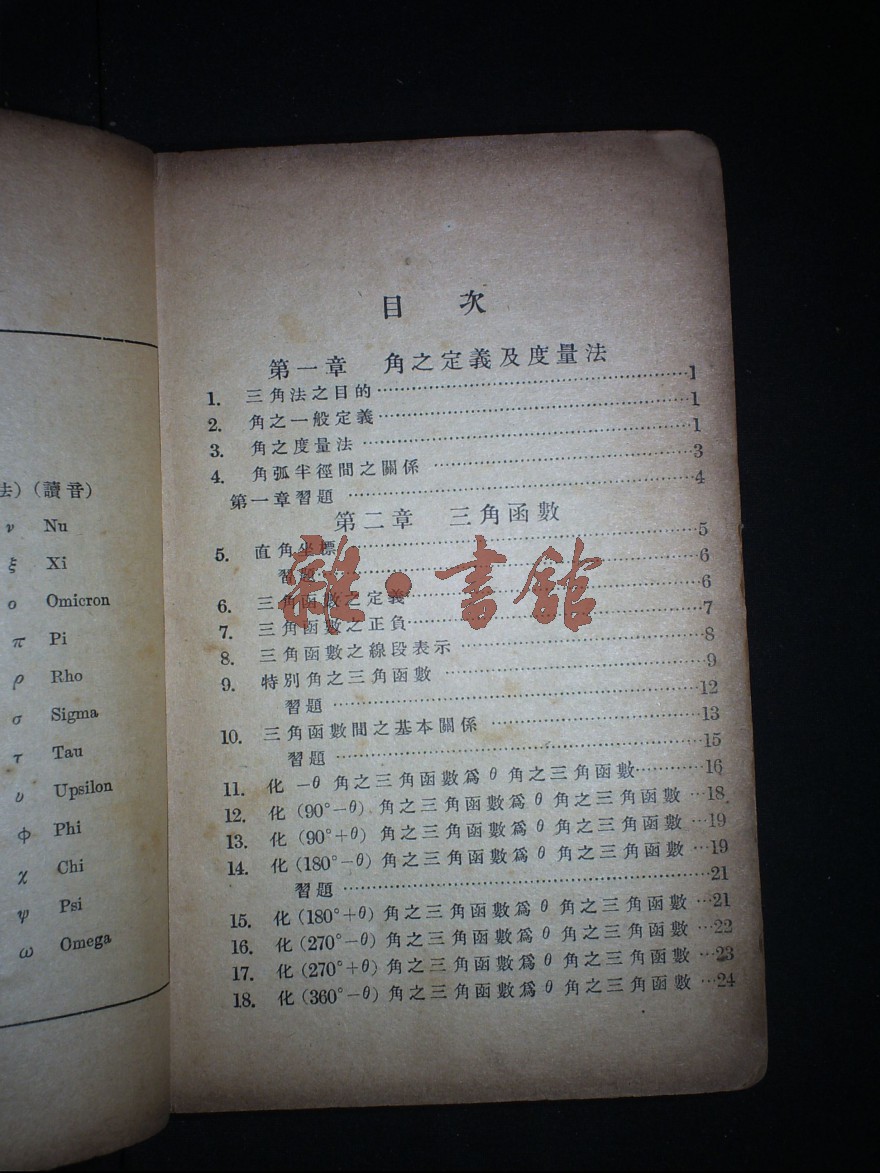 法)(讀音)
ν Nu
ξ Xi
ο Omicron
π Pi
ρ Rho
σ Sigma
τ Tau
υ Upsilon
φ Phi
χ Chi
ψ Psi
ω Omega
目 次
第一章 角之定義及度量法
1. 三角法之目的…………1
2. 角之一般定義…………1
3. 角之度量法…………1
4. 角弧半徑間之關係…………3
第一章習題…………4
第二章 三角函數
5. 直角坐標…………5
習題…………6
6. 三角函數之定義…………6
7. 三角函數之正負…………7
8. 三角函數之線段表示…………8
9. 特別角之三角函數…………9
習題…………12
10. 三角函數間之基本關係…………13
習題…………15
11. 化 −θ 角之三角函數爲 θ 角之三角函數…………16
12. 化 (90°−θ) 角之三角函數爲 θ 角之三角函數…18
13. 化 (90°+θ) 角之三角函數爲 θ 角之三角函數…19
14. 化 (180°−θ) 角之三角函數爲 θ 角之三角函數…19
習題…………21
15. 化 (180°+θ) 角之三角函數爲 θ 角之三角函數…21
16. 化 (270°−θ) 角之三角函數爲 θ 角之三角函數…22
17. 化 (270°+θ) 角之三角函數爲 θ 角之三角函數…23
18. 化 (360°−θ) 角之三角函數爲 θ 角之三角函數…24
雜·書館